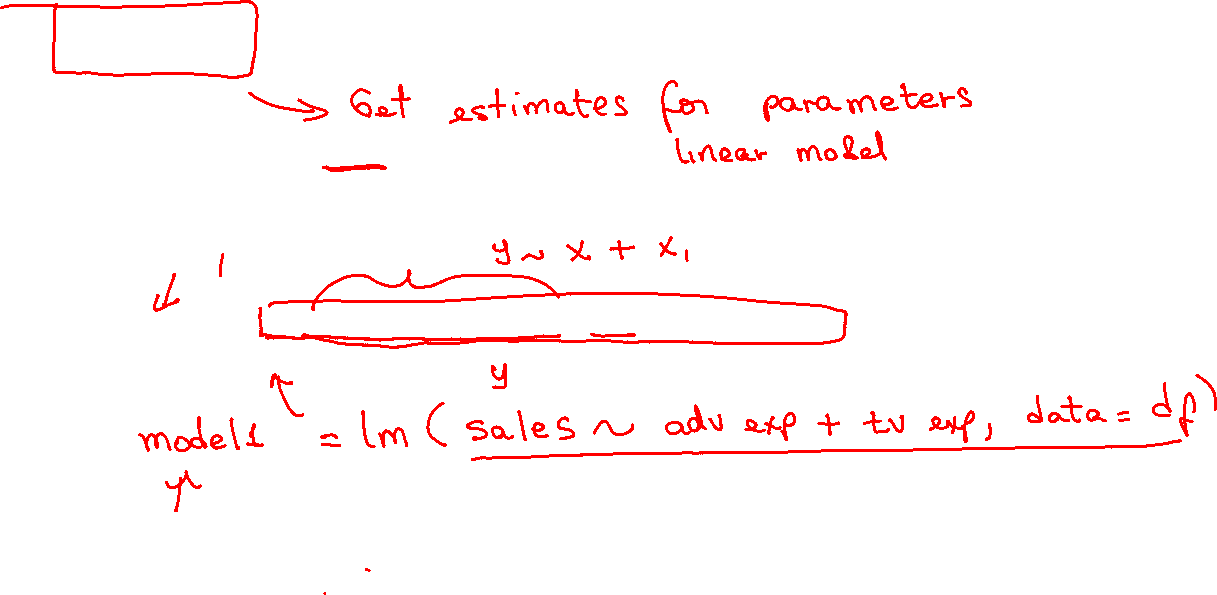 Get estimates for parameters
linear model
y ~ x + x₁
y
model1 = lm ( sales ~ adv exp + tv exp, data = df )